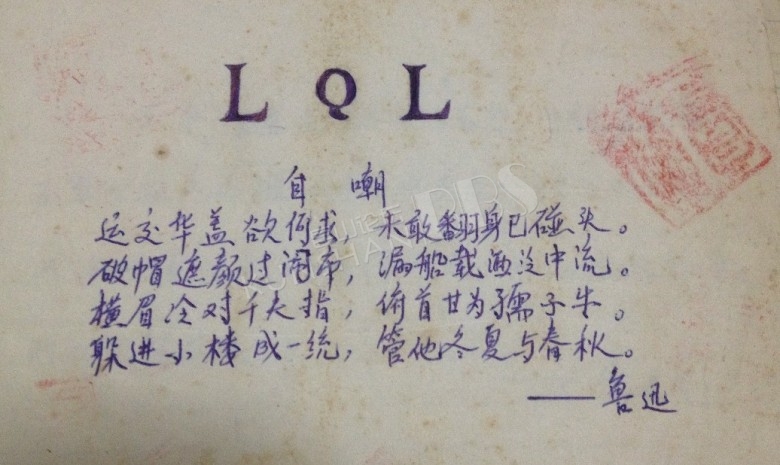 LQL
自嘲
运交华盖欲何求，未敢翻身已碰头。
破帽遮颜过闹市，漏船载酒泛中流。
横眉冷对千夫指，俯首甘为孺子牛。
躲进小楼成一统，管他冬夏与春秋。
——鲁迅